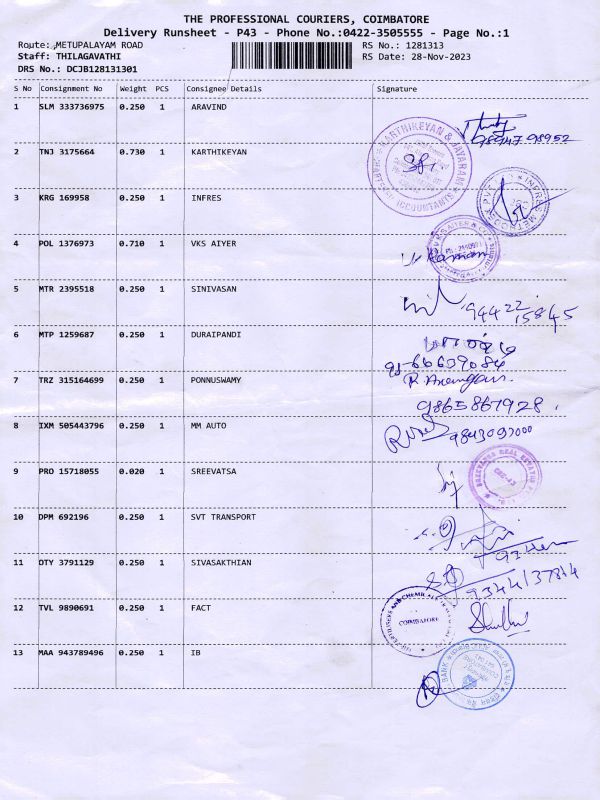 THE PROFESSIONAL COURIERS, COIMBATORE
Delivery Runsheet - P43 - Phone No.:0422-3505555 - Page No.:1
Route: METUPALAYAM ROAD RS No.: 1281313
Staff: THILAGAVATHI RS Date: 28-Nov-2023
DRS No.: DCJB128131301
S No Consignment No Weight PCS Consignee Details Signature
1 SLM 333736975 0.250 1 ARAVIND
98947 98952
2 TNJ 3175664 0.730 1 KARTHIKEYAN
KARTHIKEYAN & JAYARAM
ACCOUNTANTS
3 KRG 169958 0.250 1 INFRES
INFRES METHODEX
4 POL 1376973 0.710 1 VKS AIYER
5 MTR 2395518 0.250 1 SINIVASAN
94422 15845
6 MTP 1259687 0.250 1 DURAIPANDI
7 TRZ 315164699 0.250 1 PONNUSWAMY
9865867928
8 IXM 505443796 0.250 1 MM AUTO
9843097000
9 PRO 15718055 0.020 1 SREEVATSA
SREEVATSA REAL
10 DPM 692196 0.250 1 SVT TRANSPORT
11 OTY 3791129 0.250 1 SIVASAKTHIAN
12 TVL 9890691 0.250 1 FACT
COIMBATORE
13 MAA 943789496 0.250 1 IB
BANK